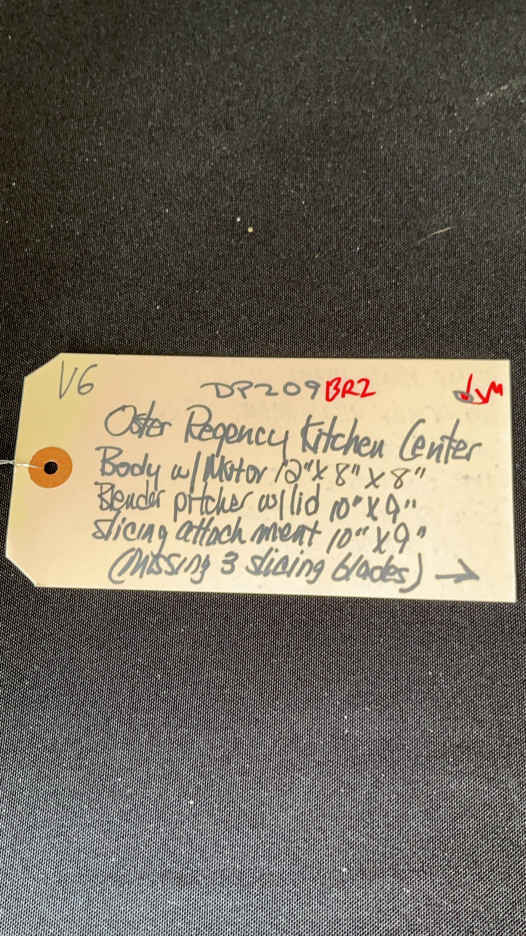 V6 DP209 BR2
Oster Regency Kitchen Center
Body w/ Motor 12" X 8" X 8"
Blender pitcher w/ lid 10" X 9"
Slicing attachment 10" X 9"
(Missing 3 slicing blades) →